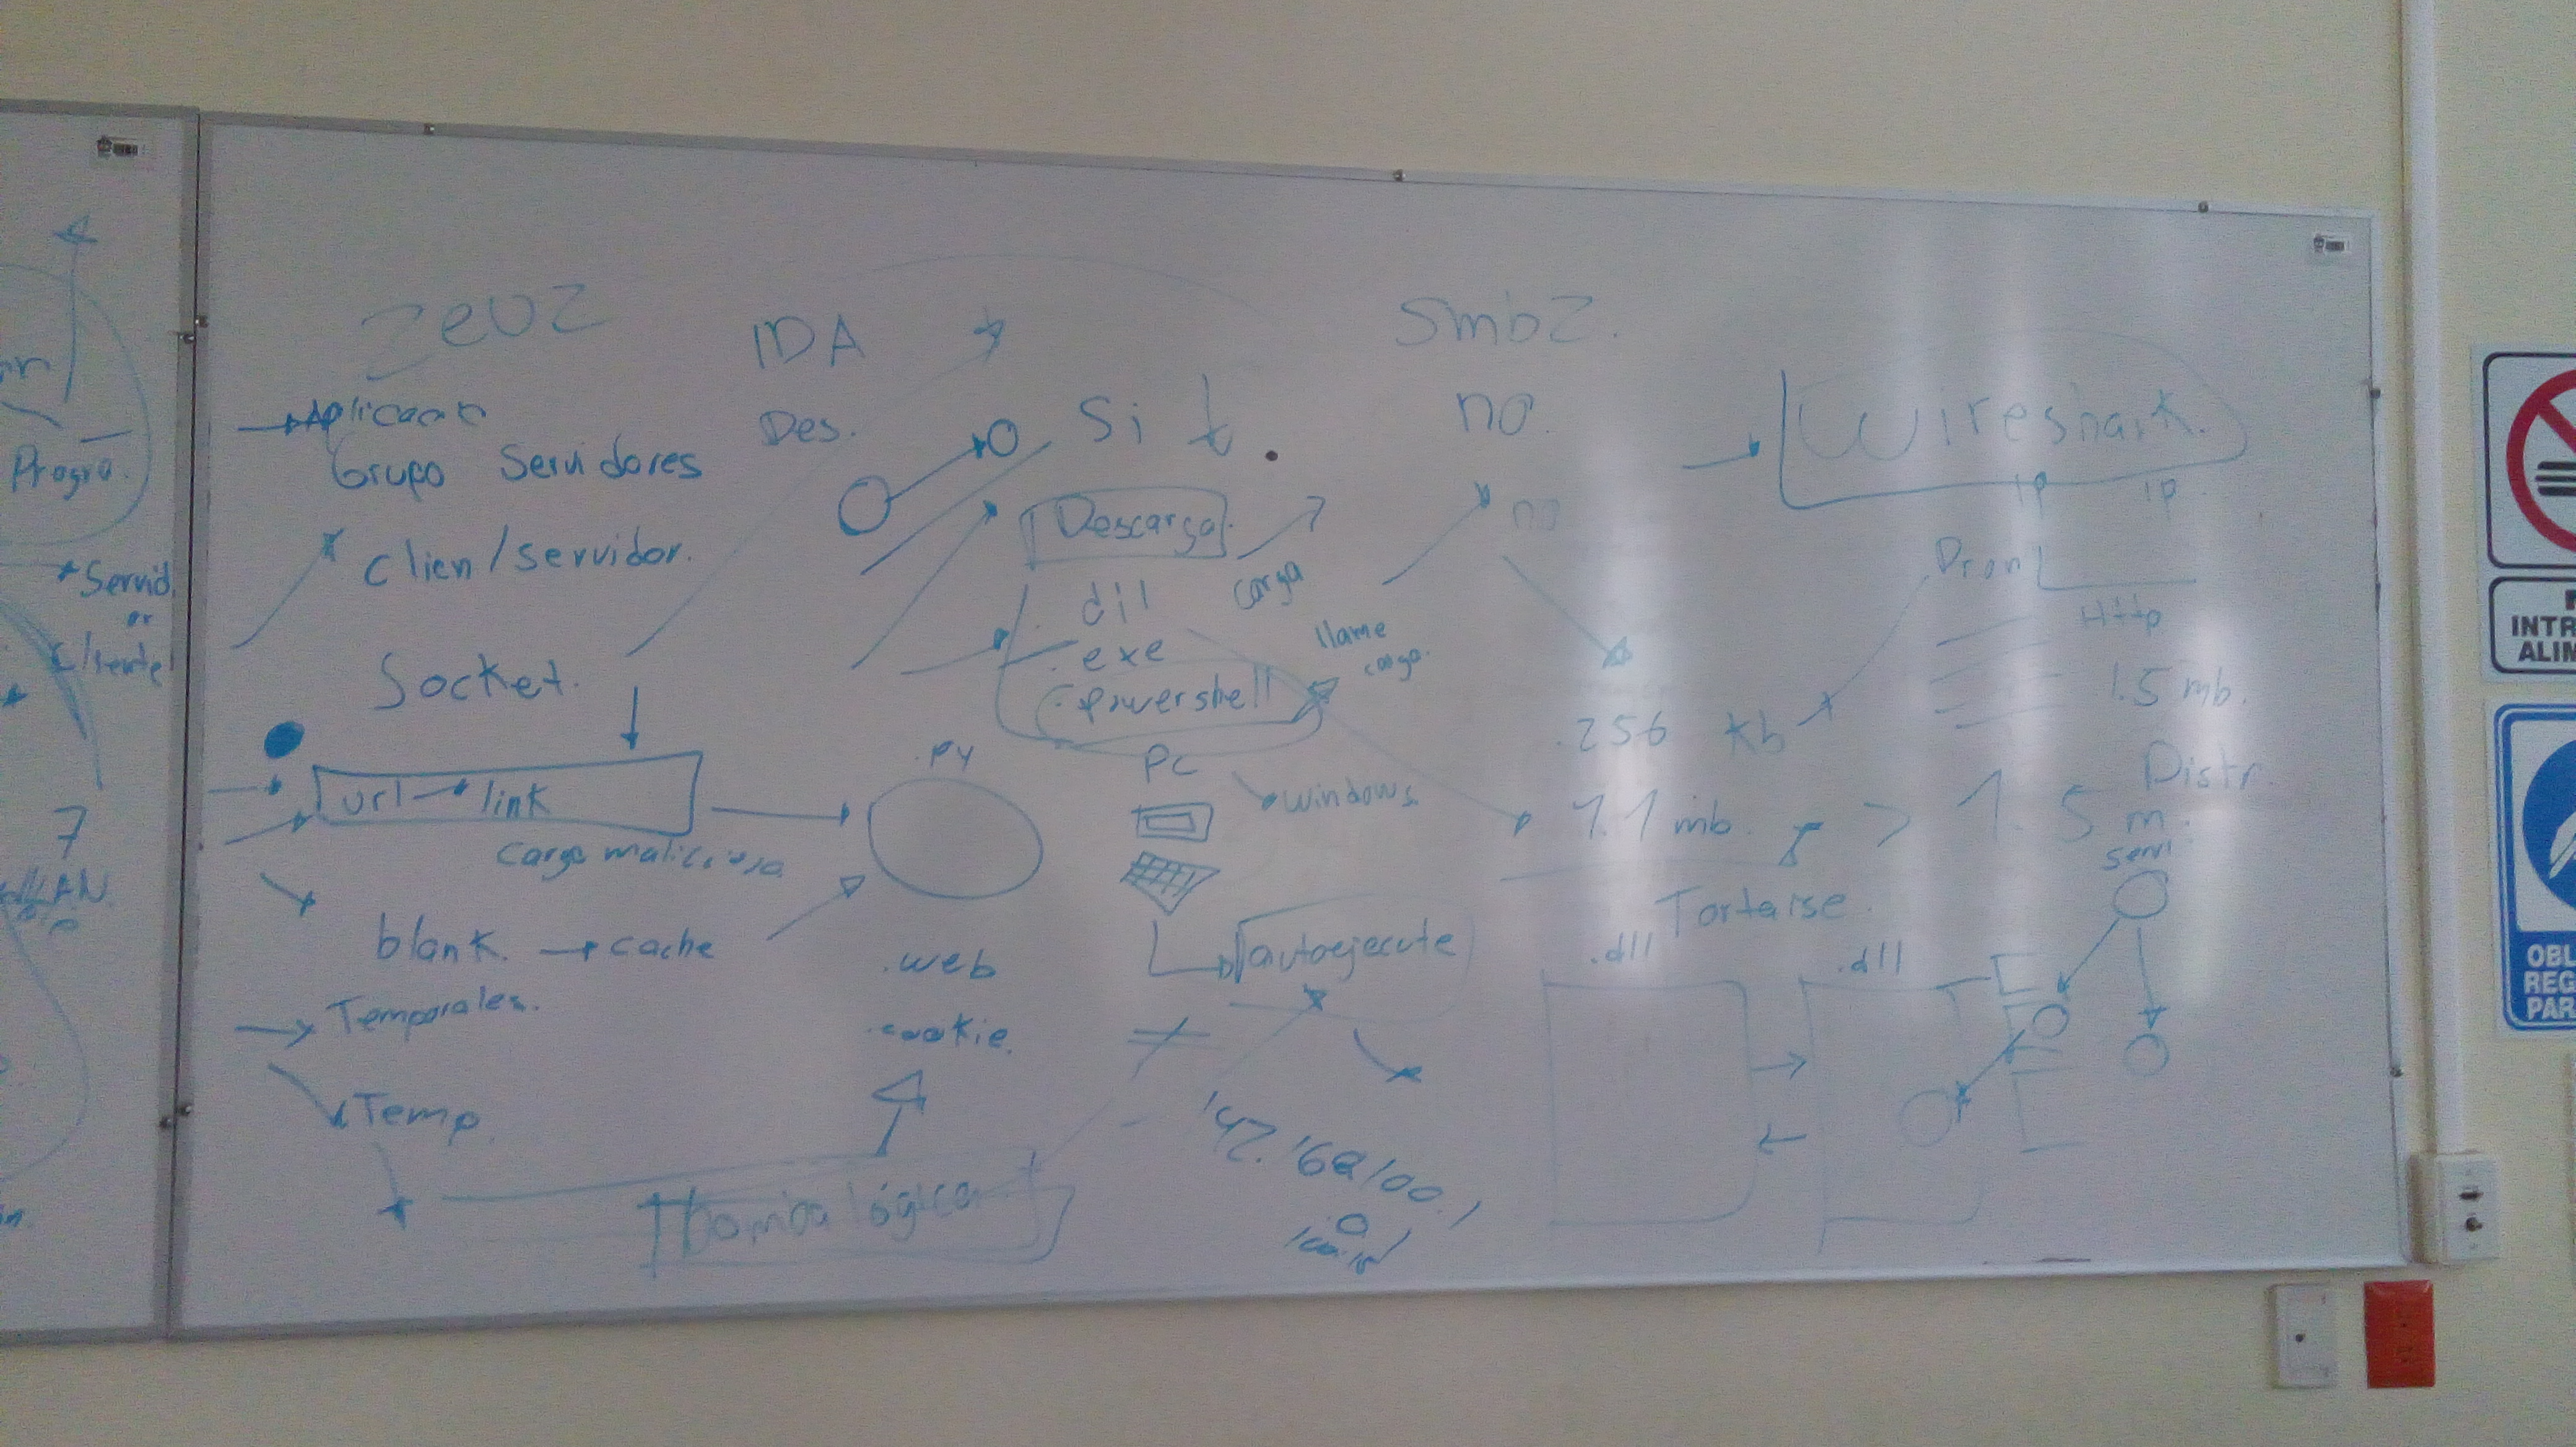 Progra.
Servid
or
Cliente
7
zeuz
Aplicacio
Grupo Servidores
Clien/servidor.
Socket.
url → link
carga maliciosa
blank. → cache
Temporales.
Temp.
bomba lógica
IDA
Des.
Si
Descarga
carga
dll
. exe
. powershell
llame
carga.
.PY
PC
windows.
autoejecute
.web
.cookie.
smb2.
no.
no
.256 kb
1.1 mb. > 1.5 m.
Tortoise.
.dll
.dll
Wireshark.
IP IP
Http
1.5 mb.
Distr.
servi
INTR
ALIM
OBL
REG
PAR